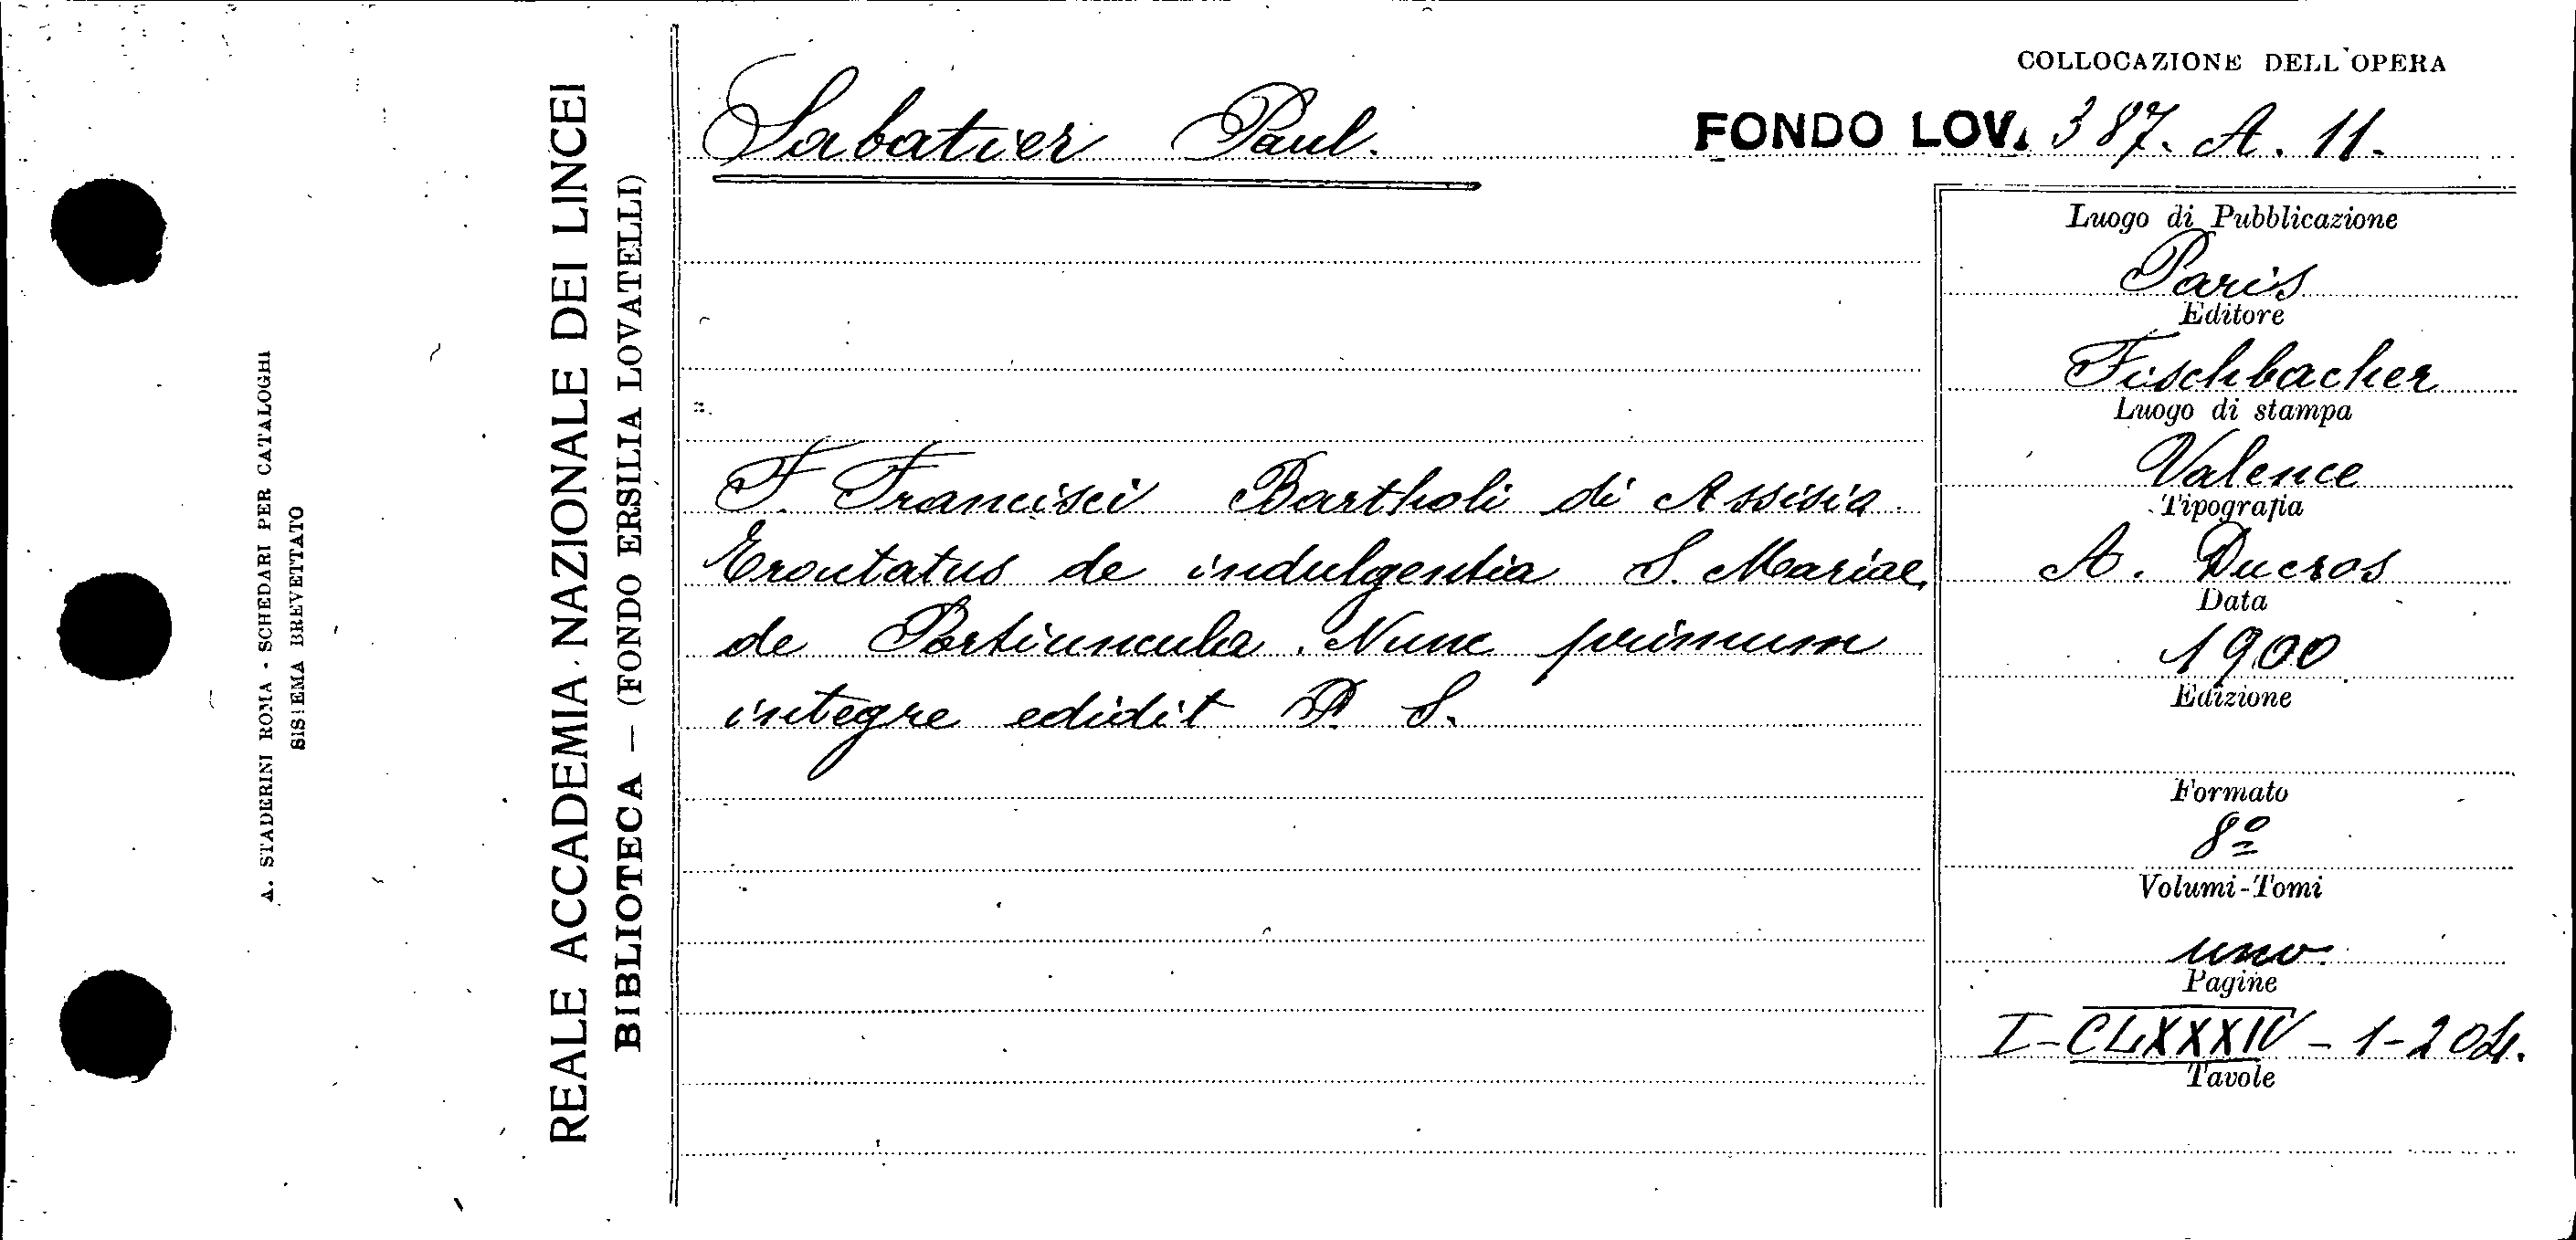 A. STADERINI ROMA - SCHEDARI PER CATALOGHI
SISTEMA BREVETTATO
REALE ACCADEMIA NAZIONALE DEI LINCEI
BIBLIOTECA — (FONDO ERSILIA LOVATELLI)
COLLOCAZIONE DELL'OPERA
Sabatier Paul.
FONDO LOV. 387. A. 11.
F. Francisci Bartholi di Assisia
de indulgentia S. Mariae
de Portiuncula. Nunc primum
integre edidit P. S.
Luogo di Pubblicazione
Paris
Editore
Fischbacher
Luogo di stampa
Valence
Tipografia
A. Ducros
Data
1900
Edizione
Formato
8º
Volumi-Tomi
uno
Pagine
I-CLXXXIV - 1-204.
Tavole